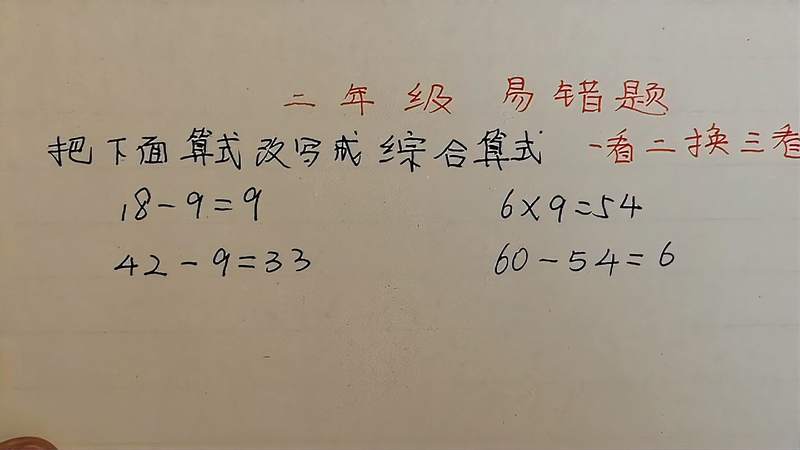 二年级 易错题
把下面算式改写成综合算式 一看二换三看
18-9=9 6×9=54
42-9=33 60-54=6